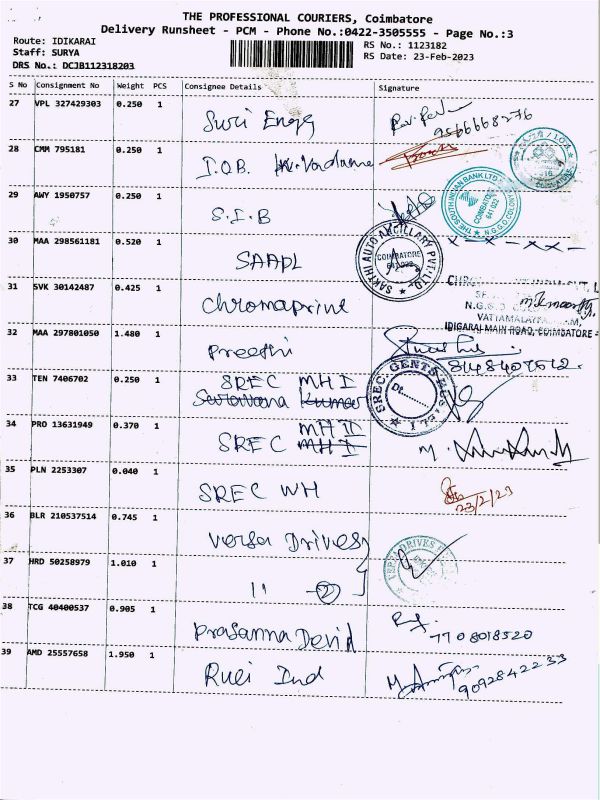 THE PROFESSIONAL COURIERS, Coimbatore
Delivery Runsheet - PCM - Phone No.:0422-3505555 - Page No.:3
Route: IDIKARAI
Staff: SURYA
DRS No.: DCJB112318203
RS No.: 1123182
RS Date: 23-Feb-2023
S No Consignment No Weight PCS Consignee Details Signature
27 VPL 327429303 0.250 1 Suri Engg 9566668276
28 CMM 795181 0.250 1 I.O.B.
29 AWY 1950757 0.250 1 S.I.B
THE SOUTH INDIAN BANK LTD. COIMBATORE 641 022 N.G.G.O. COLONY
30 MAA 298561181 0.520 1 SAAPL
SAKTHI AUTO ANCILLARY PVT. LTD. COIMBATORE 641 022
31 SVK 30142487 0.425 1 Chromaprint
N.G.G.O
VATTAMALAI
IDIGARAI MAIN ROAD, COIMBATORE
32 MAA 297801050 1.480 1 Preethi
33 TEN 7406702 0.250 1 SREC MH I
Saravana Kumar
SREC. GENTS
34 PRO 13631949 0.370 1 SREC MH I MH II
35 PLN 2253307 0.040 1 SREC WH 23/2/23
36 BLR 210537514 0.745 1 Versa Drives
VERSA DRIVES
37 HRD 50258979 1.010 1 11 - 2
38 TCG 40400537 0.905 1 Prasanna Devid 7708018520
39 AMD 25557658 1.950 1 Ruei Ind 9092842233